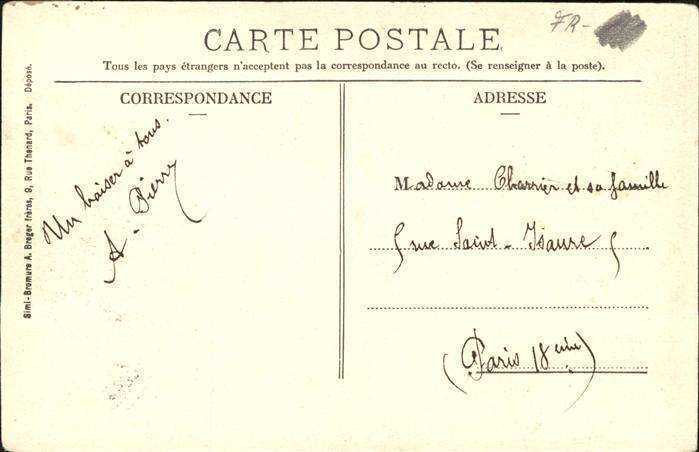 FR-
CARTE POSTALE
Tous les pays étrangers n'acceptent pas la correspondance au recto. (Se renseigner à la poste).
CORRESPONDANCE
ADRESSE
Simi-Bromure A. Breger frères, 9, Rue Thénard, Paris. Déposé.
Un baiser à tous.
A. Pierry
Madame Charrier et sa famille
rue Saint-Isaure
(Paris 18eme)